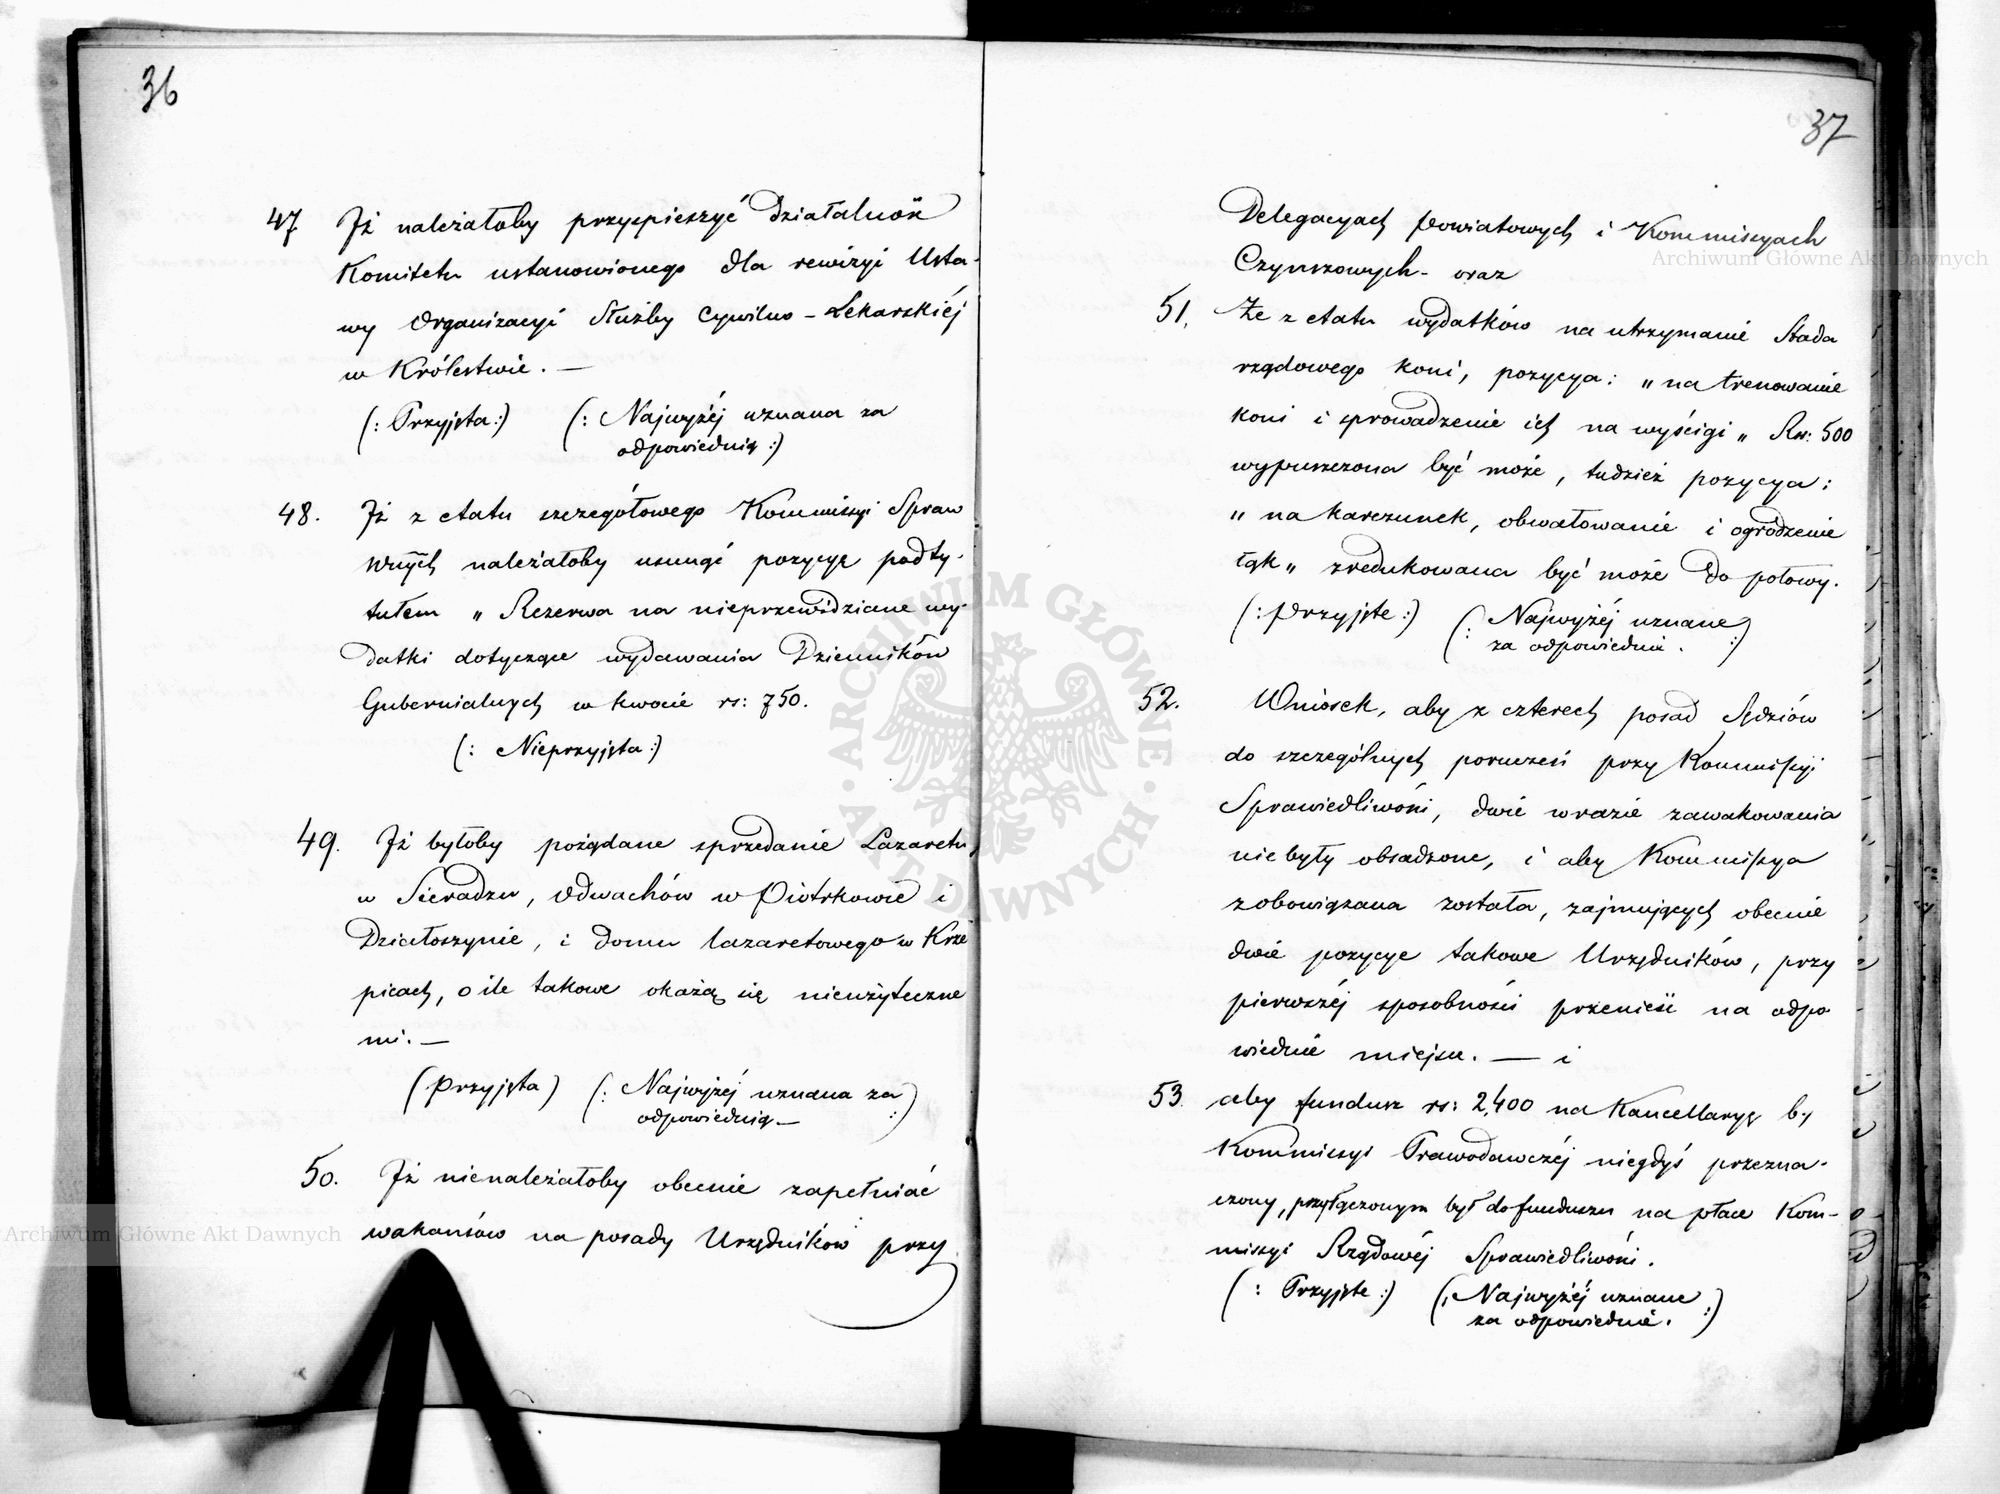 36
47 Iż należałoby przyspieszyć działalność
Komitetu ustanowionego dla rewizyi Usta-
wy Organizacyi Służby Cywilno-Lekarskiéj
w Królestwie. —
(: Przyjęta :) (: Najwyżéj uznana za
odpowiednią :)
48. Iż z etatu szczegółowego Kommissyi Spraw
Wnych należałoby usunąć pozycyę pod ty-
tułem „ Rezerwa na nieprzewidziane wy-
datki dotyczące wydawania Dzienników
Gubernialnych w kwocie rs: 750.
(: Nieprzyjęta :)
49. Iż byłoby pożądane sprzedanie Lazaretu
w Sieradzu, Odwachów w Piotrkowie i
Działoszynie, i domu lazaretowego w Krze
picach, o ile takowe okażą się nieużyteczne
mi. —
(Przyjęta) (: Najwyżéj uznana za
odpowiednią — :)
50. Iż nienależałoby obecnie zapełniać
wakansów na posady Urzędników przy
37
Delegacyach Powiatowych i Kommissyach
Czynszowych - oraz
51. Że z etatu wydatków na utrzymanie Stada
rządowego koni, pozycya: „na trenowanie
koni i sprowadzenie ich na wyścigi „ Rs: 500
wypuszczona być może, tudzież pozycya:
„ na karczunek, obwałowanie i ogrodzenie
łąk „ zredukowana być może do połowy.
(: Przyjęte :) (: Najwyżéj uznane
za odpowiednie. :)
52. Wniosek, aby z czterech posad Sędziów
do szczególnych poruczeń przy Kommissyi
Sprawiedliwości, dwie w razie zawakowania
niebyły obsadzone, i aby Kommissya
zobowiązana została, zajmujących obecnie
dwie pozycye takowe Urzędników, przy
pierwszéj sposobności przenieść na odpo
wiednie miejsce. — i
53. aby fundusz rs: 2,400 na Kancellaryę by
Kommissyi Prawodawczéj niegdyś przezna-
czony, przyłączonym był do funduszu na płace Kom-
missyi Rządowéj Sprawiedliwości.
(: Przyjęte :) (: Najwyżéj uznane
za odpowiednie. :)
Archiwum Główne Akt Dawnych
Archiwum Główne Akt Dawnych
ARCHIWUM GŁÓWNE · AKT DAWNYCH ·